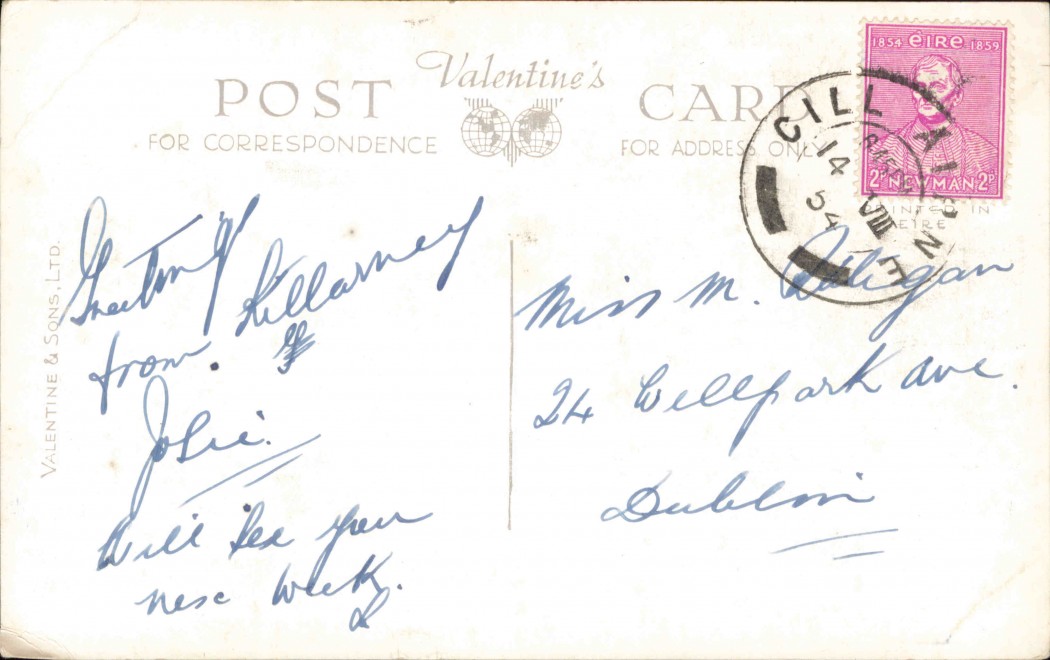 POST Valentine's CARD
FOR CORRESPONDENCE FOR ADDRESS ONLY
1854 éIRe 1859
2P NEWMAN 2P
PRINTED IN
EIRE
CILL AIRNE
14 VIII
54
VALENTINE & SONS, LTD.
Greetings
from Killarney
Josie.
Will see you
nesc week.
Miss M.
24 Wellpark Ave.
Dublin